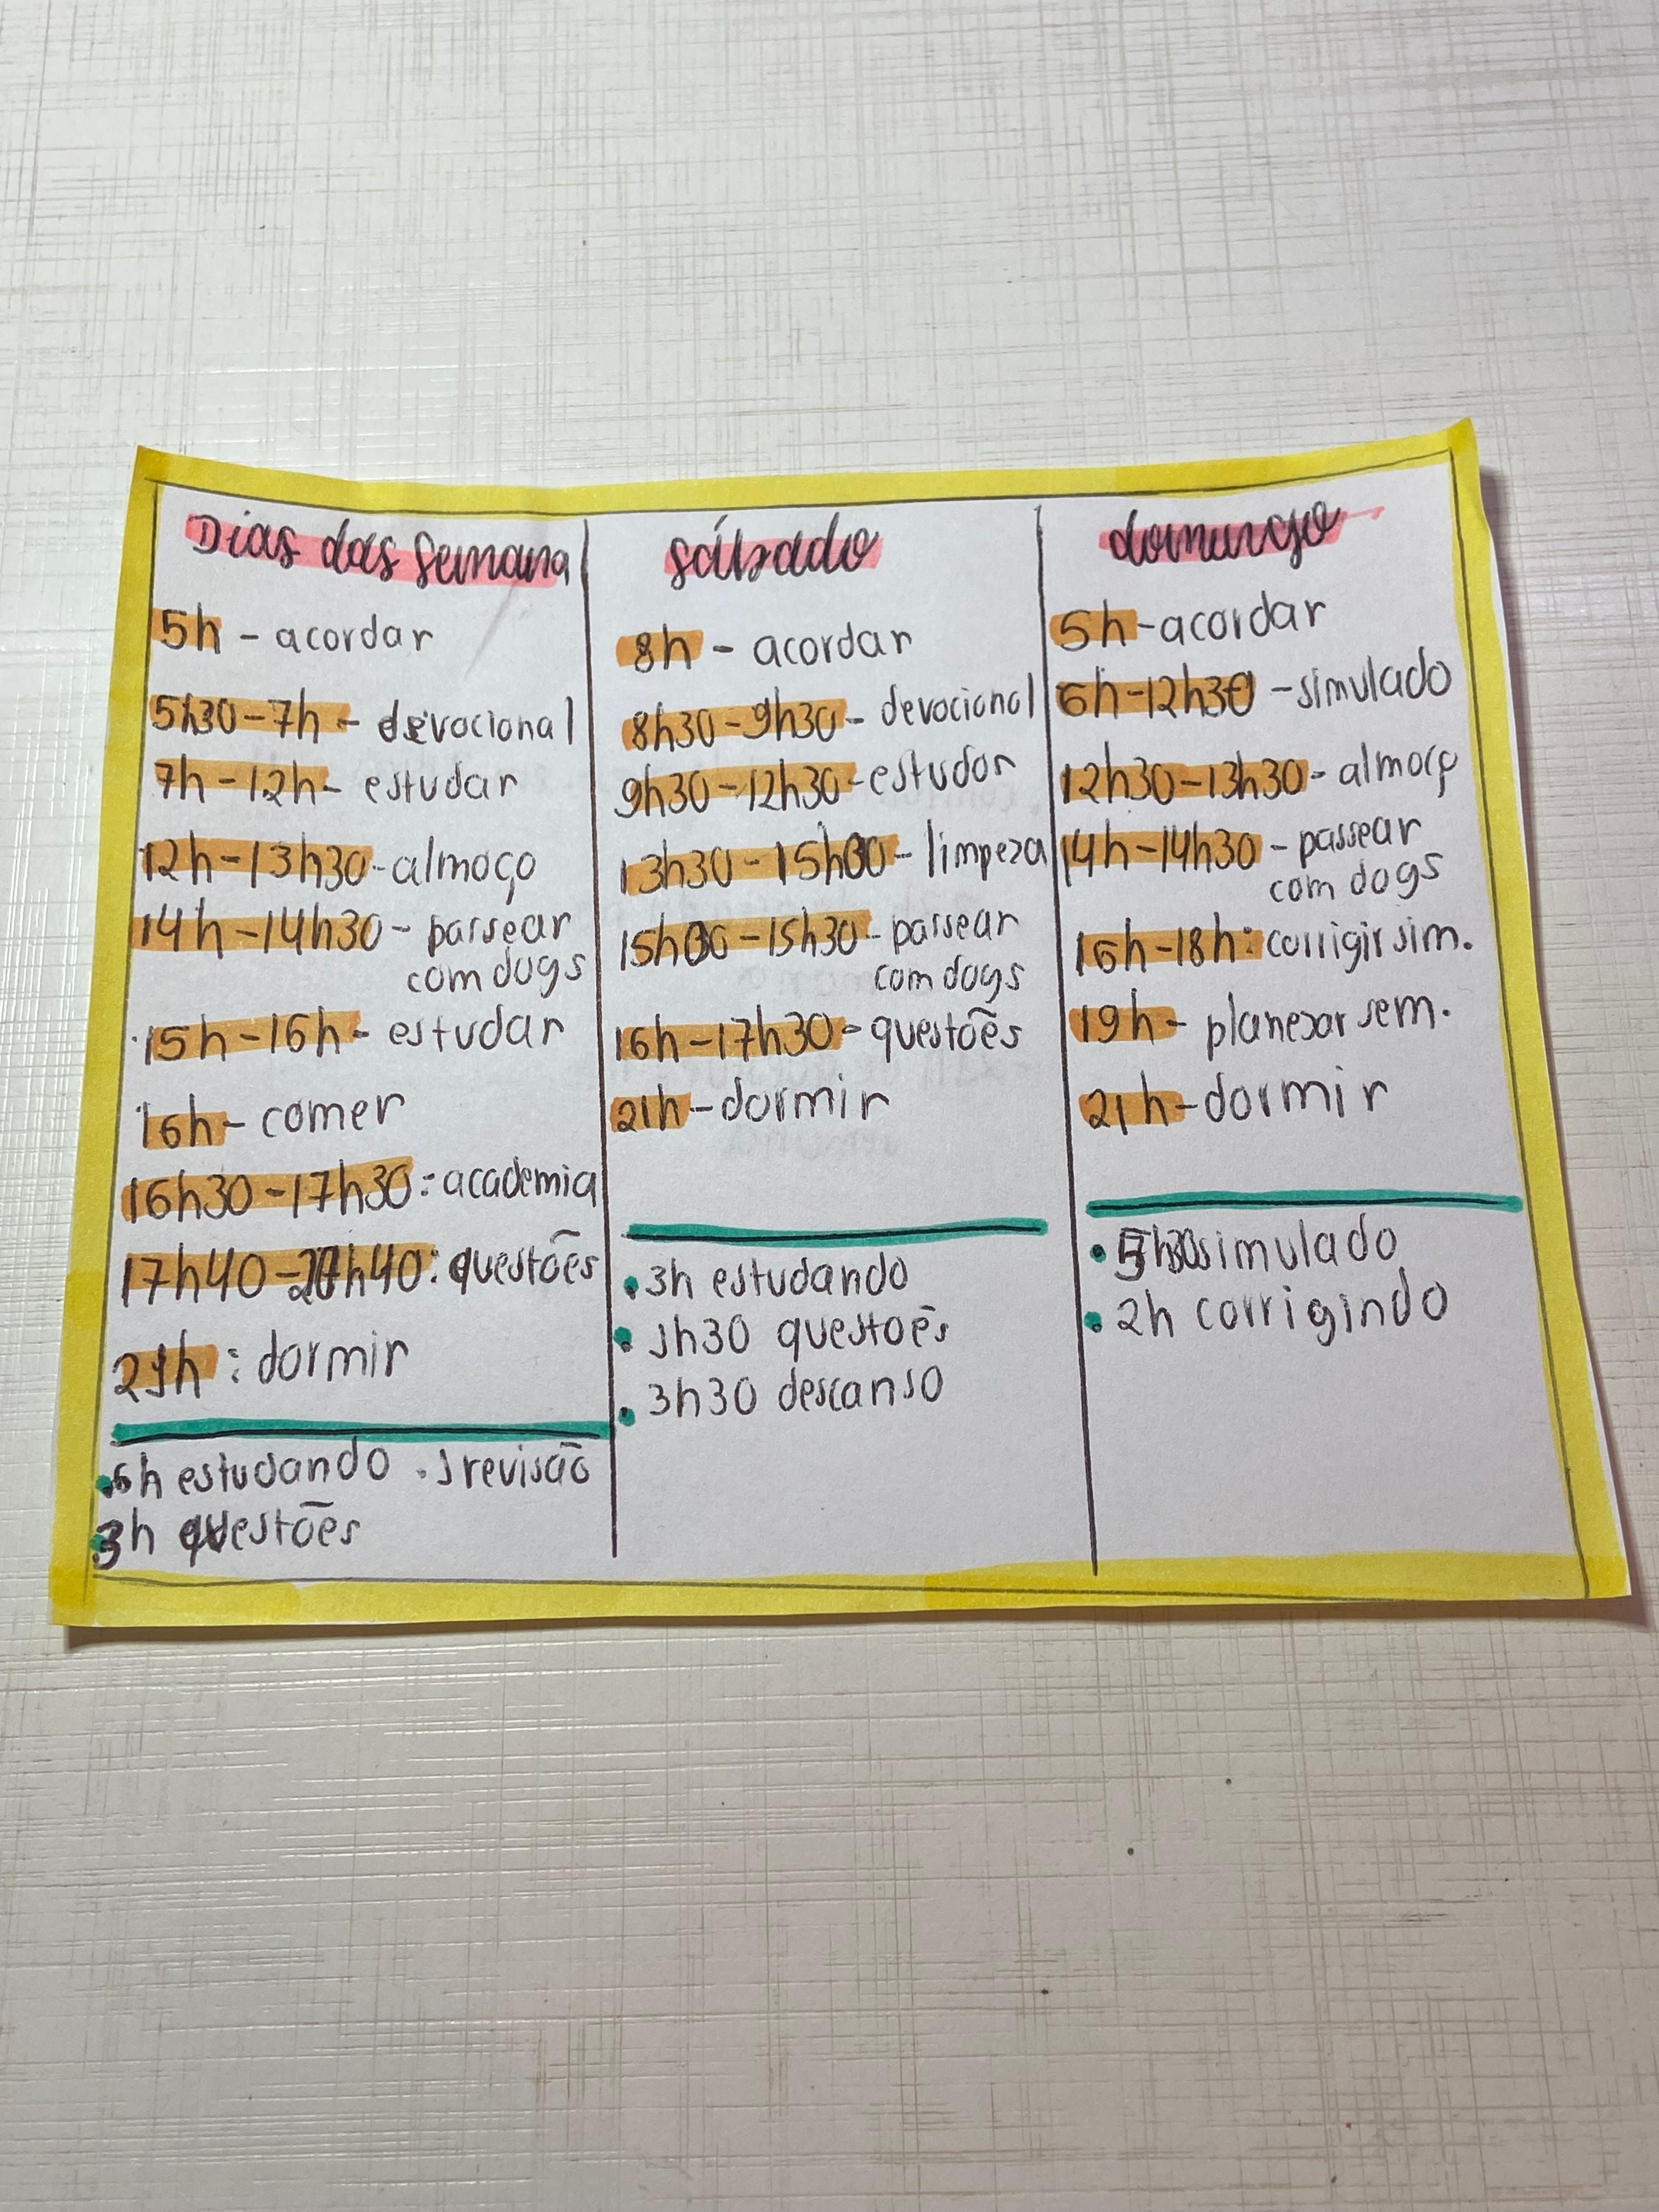 Dias das semana
5h - acordar
5h30 - 7h - devocional
7h - 12h - estudar
12h - 13h30 - almoço
14h - 14h30 - passear
com dogs
15h - 16h - estudar
16h - comer
16h30 - 17h30: academia
17h40 - 20h40: questões
21h: dormir
• 6h estudando • 1 revisão
• 3h questões
sábado
8h - acordar
8h30 - 9h30 - devocional
9h30 - 12h30 - estudar
13h30 - 15h00 - limpeza
15h00 - 15h30 - passear
com dogs
16h - 17h30 - questões
21h - dormir
• 3h estudando
• 1h30 questões
• 3h30 descanso
domingo
5h - acordar
6h - 12h30 - simulado
12h30 - 13h30 - almoço
14h - 14h30 - passear
com dogs
16h - 18h: corrigir sim.
19h - planejar sem.
21h - dormir
• simulado
• 2h corrigindo